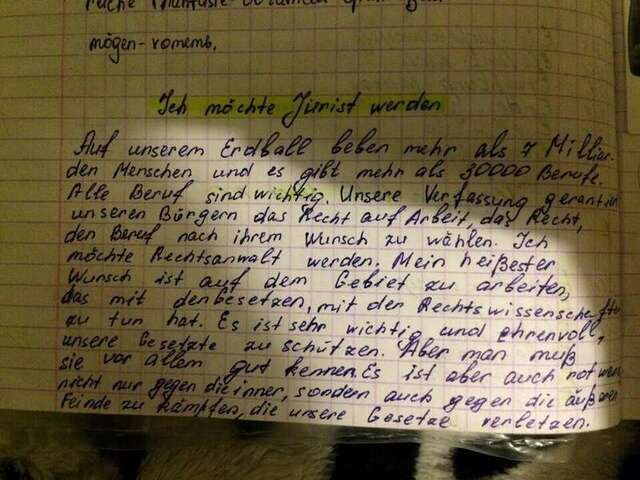 mögen-хотеть,
Ich möchte Jurist werden
Auf unserem Erdball leben mehr als 7 Milliar-
den Menschen und es gibt mehr als 30000 Berufe.
Alle Beruf sind wichtig. Unsere Verfassung gerantiert
unseren Bürgern das Recht auf Arbeit, das Recht,
den Beruf nach ihrem Wunsch zu wählen. Ich
möchte Rechtsanwalt werden. Mein heißester
Wunsch ist auf dem Gebiet zu arbeiten,
das mit denbesetzen, mit der Rechtswissenschaften
zu tun hat. Es ist sehr wichtig und ehrenvoll,
unsere Gesetzte zu schützen. Aber man muß
sie vor allem gut kennen. Es ist aber auch notwen
nicht nur gegen die inner, sondern auch gegen die äußeren
Feinde zu kämpfen, die unsere Gesetze verletzen.